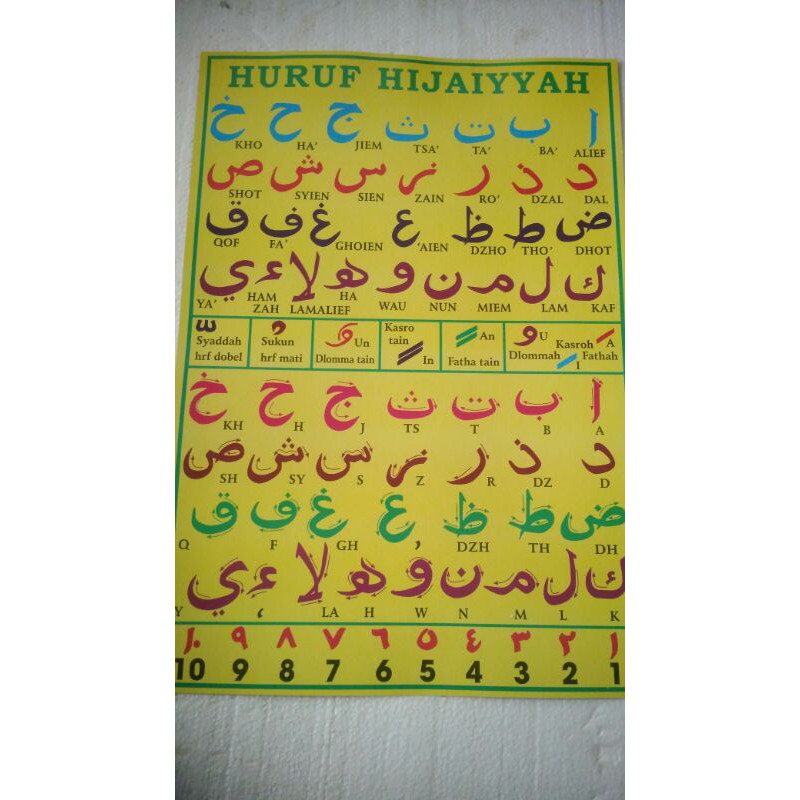 HURUF HIJAIYYAH
ا ب ت ث ج ح خ
ALIEF BA' TA' TSA' JIEM HA' KHO
د ذ ر ز س ش ص
DAL DZAL RO' ZAIN SIEN SYIEN SHOT
ض ط ظ ع غ ف ق
DHOT THO' DZHO 'AIEN GHOIEN FA' QOF
ك ل م ن و ه لا ء ي
KAF LAM MIEM NUN WAU HA LAMALIEF HAM ZAH YA'
Syaddah hrf dobel
Sukun hrf mati
Un Dlomma tain
Kasro tain In
An Fatha tain
U Dlommah Kasroh I A Fathah
ا ب ت ث ج ح خ
A B T TS J H KH
د ذ ر ز س ش ص
D DZ R Z S SY SH
ض ط ظ ع غ ف ق
DH TH DZH , GH F Q
ك ل م ن و ه لا ء ي
K L M N W H LA ‘ Y
١ ٢ ٣ ٤ ٥ ٦ ٧ ٨ ٩ ١٠
1 2 3 4 5 6 7 8 9 10